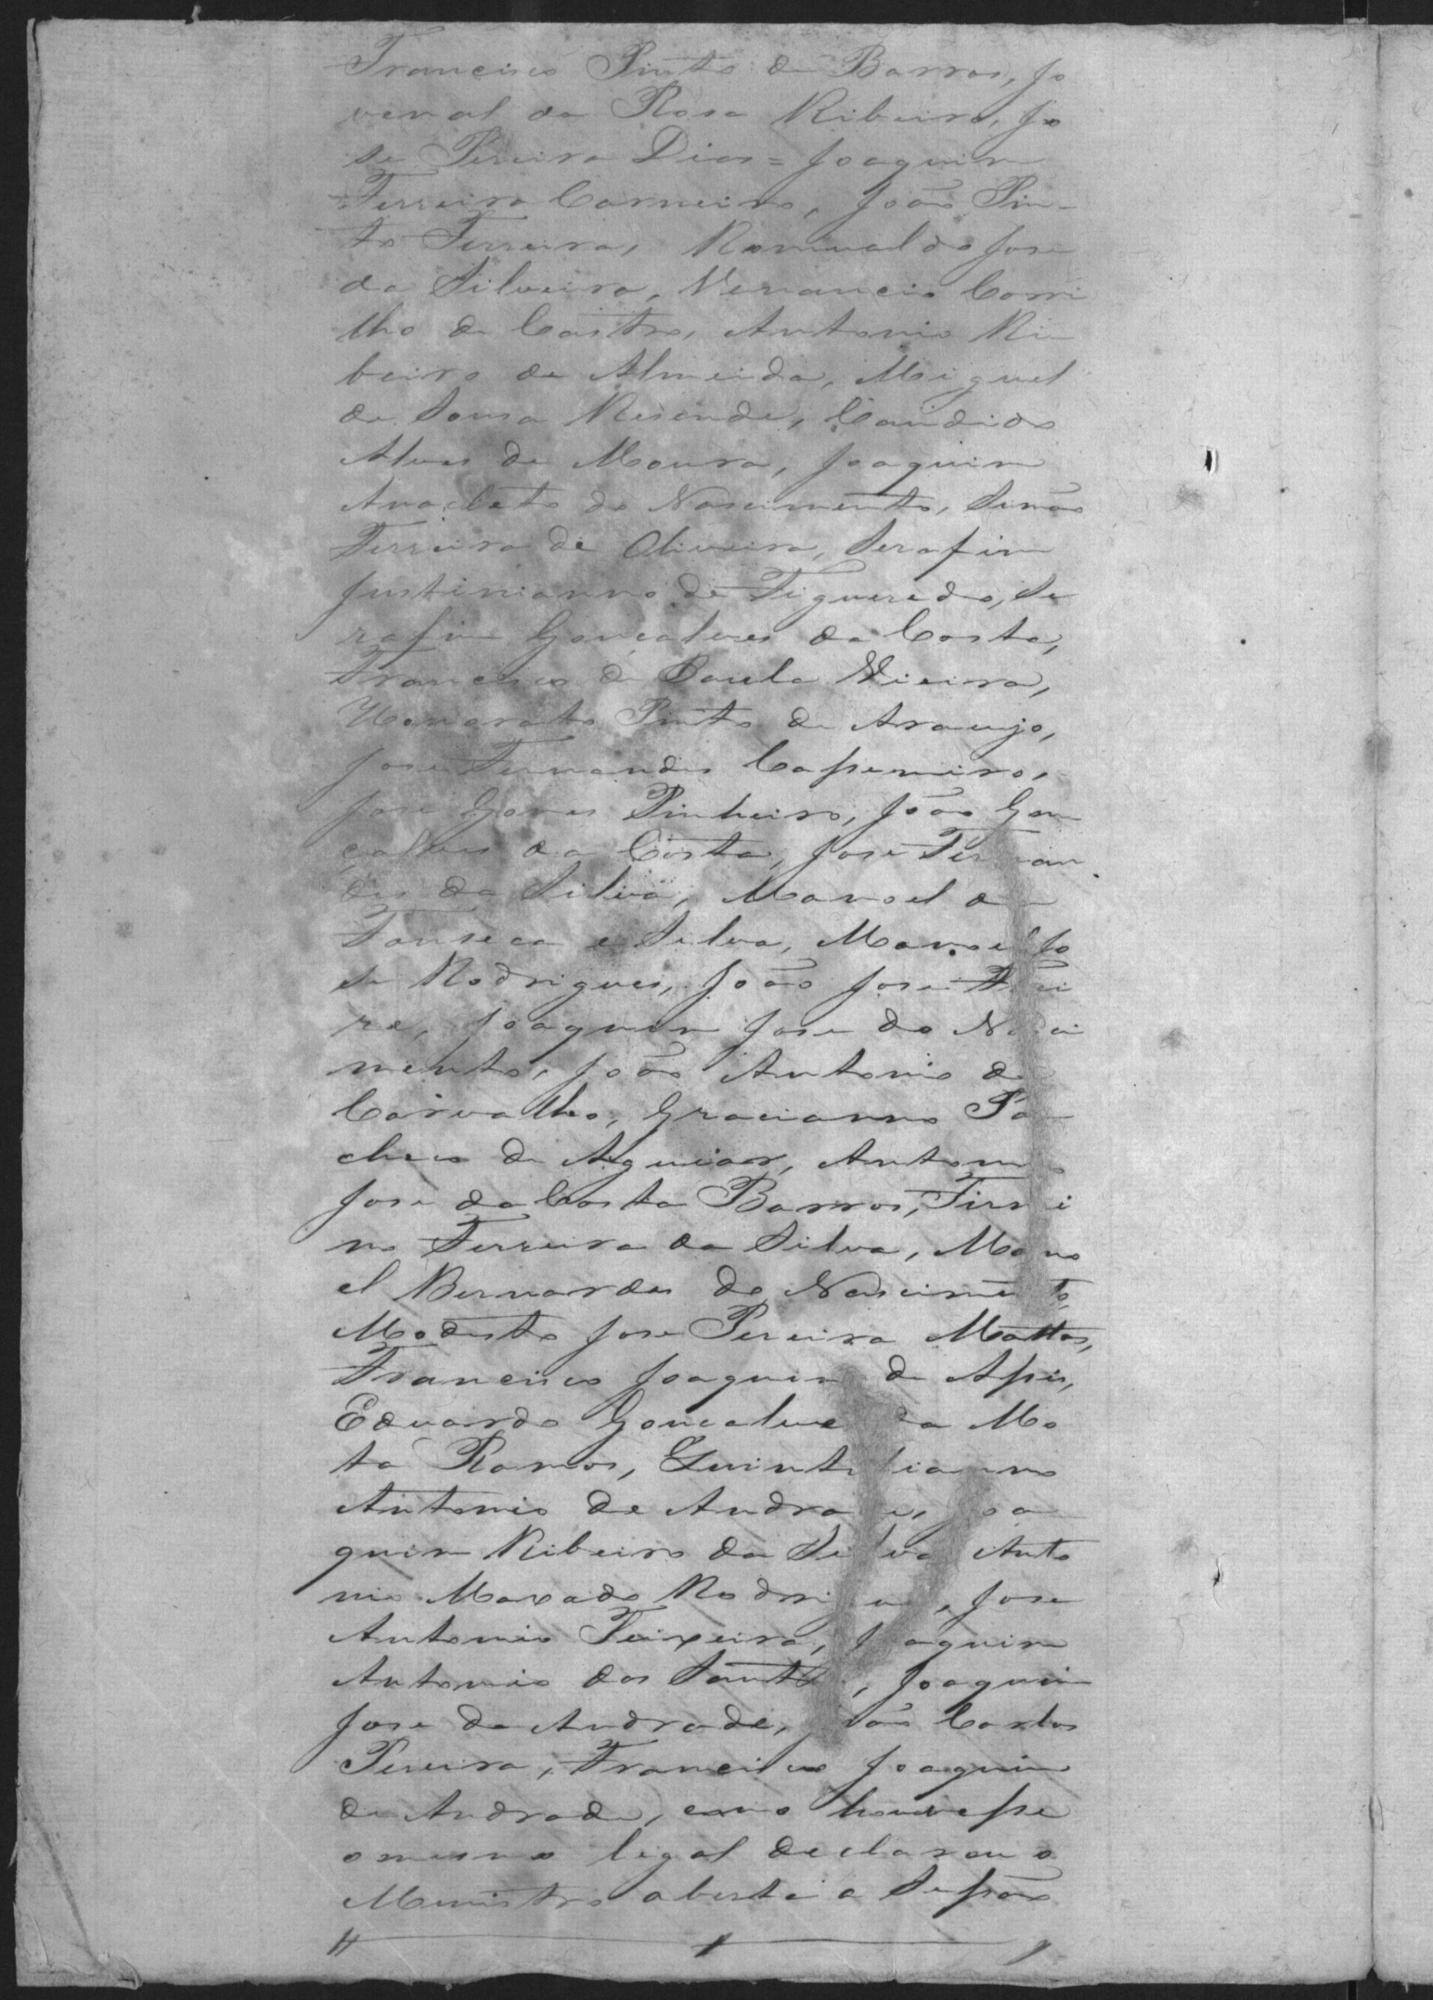 Francisco Pinto de Barros, Jo
venal da Rosa Ribeiro, Jo
se Pereira Dias = Joaquim
Ferreira Carneiro, João Pin-
to Ferreira, Romualdo Jose
da Silveira, Venancio Carri
lho de Castro, Antonio Ri
beiro de Almeida, Miguel
de Sousa Resende, Candido
Alves de Moura, Joaquim
Anacleto do Nascimento, Simão
Ferreira de Oliveira, Serafim
Justinianno de Figueredo, Se
rafim Gonçalves da Costa,
Francisco de Paula Vieira,
Honorato Pinto de Araujo,
Jose Fernandes
Jose Gomes Pinheiro, João Gon
calves da Costa, Jose Fernan
des da Silva, Manoel da
Fonseca e Silva, Manoel Jo
se Rodrigues, João Jose Frei
re, Joaquim Jose do Nasci
mento, João Antonio de
Carvalho, Gracianno Pa
checo de Aguiar, Antonio
Jose da Costa Barros, Firmi
no Ferreira da Silva, Mano
el Bernardes do Nascimento,
Modesto Jose Pereira Mattos,
Francisco Joaquim de Assis,
Eduardo Goncalves da Mo
ta Ramos, Quintilianno
Antonio de Andrade, Joa
quim Ribeiro da Silva Anto
nio Maxado Rodrigues, Jose
Antonio Teixeira, Joaquim
Antonio dos Santos, Joaquim
Jose de Andrade, João Carlos
Pereira, Francisco Joaquim
de Andrade, como houvesse
omesmo legal declarou o
Menistro aberta a Sessão